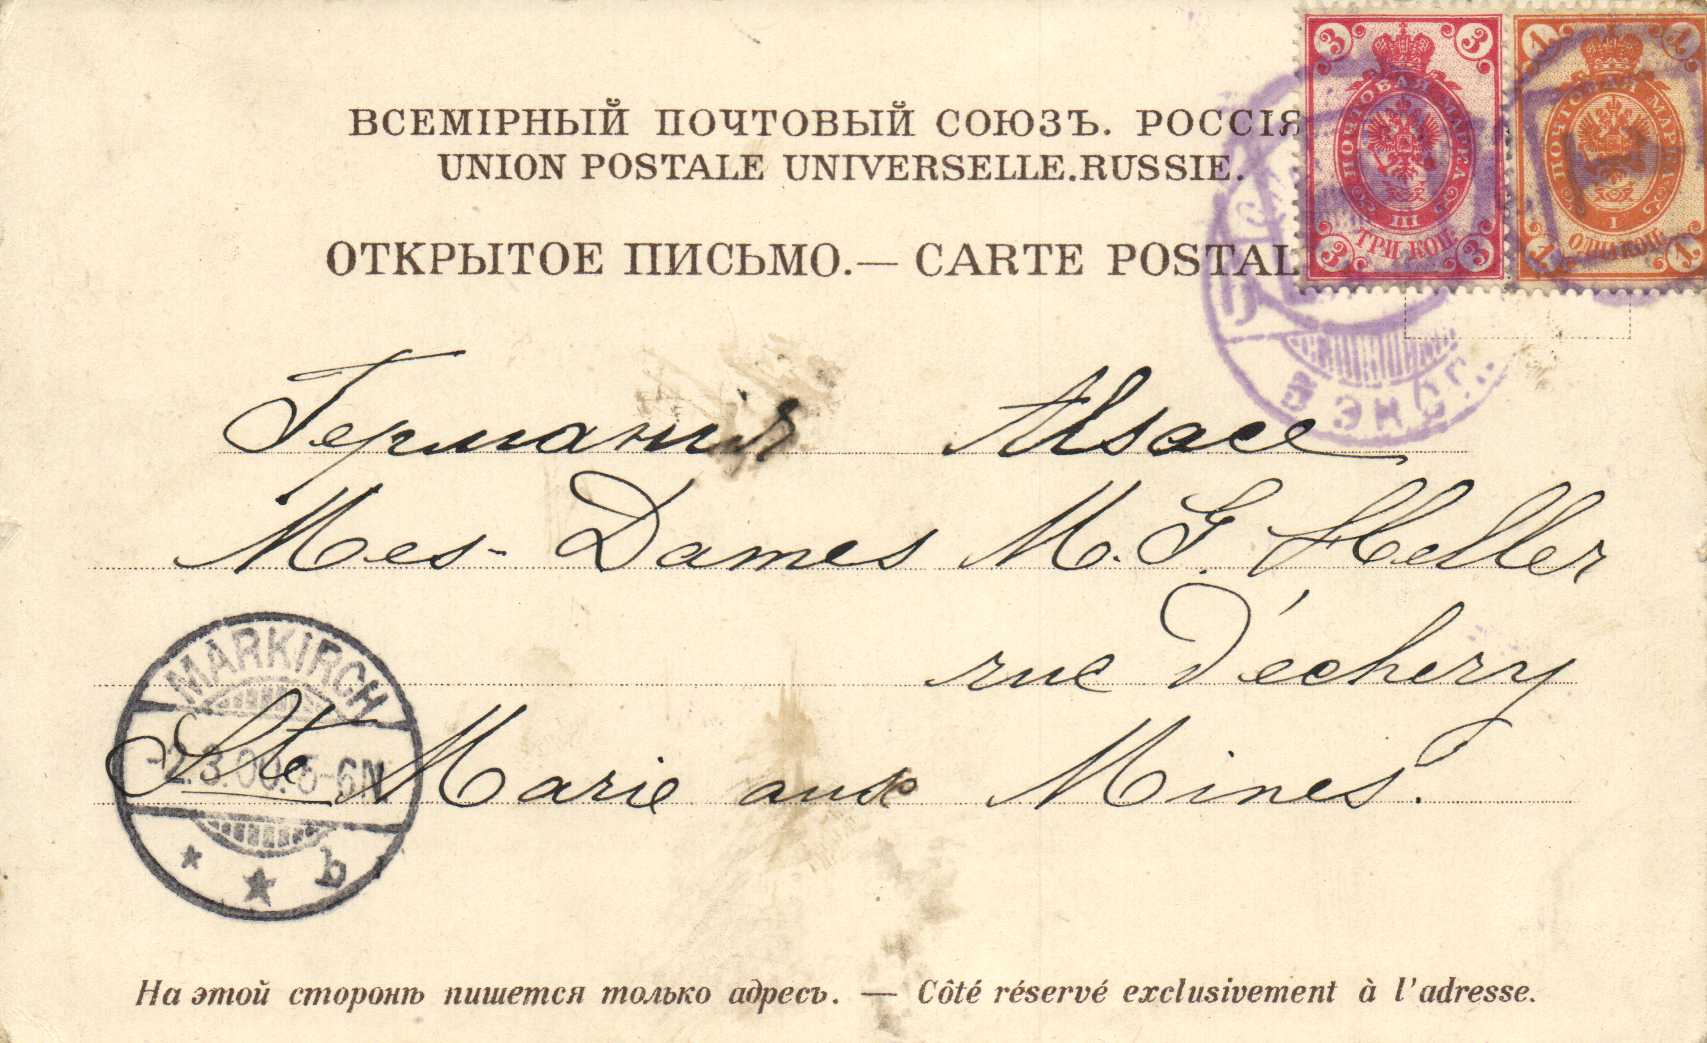 ВСЕМІРНЫЙ ПОЧТОВЫЙ СОЮЗЪ. РОССІЯ
UNION POSTALE UNIVERSELLE.RUSSIE.
ОТКРЫТОЕ ПИСЬМО.— CARTE POSTAL
3 3
ПОЧТОВАЯ МАРКА
III
ТРИ КОП.
3 3
1 1
ПОЧТОВАЯ МАРКА
I
ОДНА КОП.
1 1
Германія Alsace
Mes- Dames M. G. Heller
rue D'echery
Ste Marie aux Mines.
MARKIRCH
-2.3.00.5-6N
* * b
На этой сторонѣ пишется только адресъ. — Côté réservé exclusivement à l'adresse.